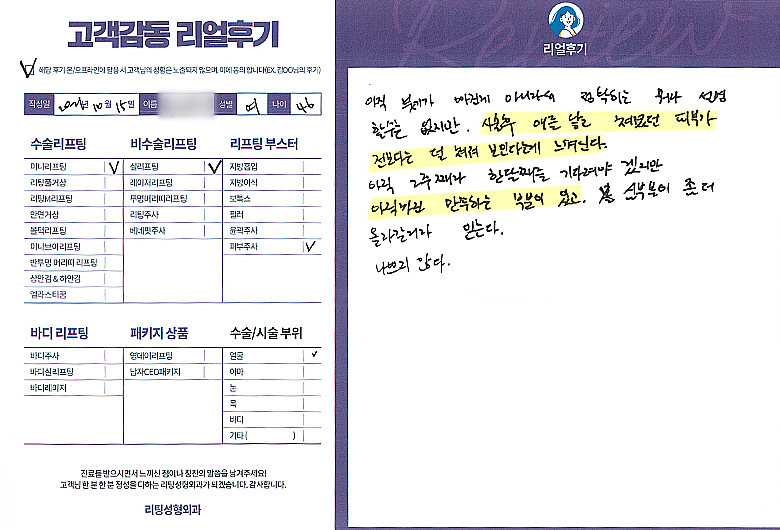 고객감동 리얼후기
해당 후기 온/오프라인에 활용 시 고객님의 성함은 노출되지 않으며, 이에 동의 합니다(EX. 김OO님의 후기)
작성일 년 10월 15일 이름 성별 여 나이 46
수술리프팅 비수술리프팅 리프팅 부스터
미니리프팅 실리프팅 지방흡입
리팅풀거상 레이저리프팅 지방이식
리팅M리프팅 투명머리띠리프팅 보톡스
안면거상 리팅주사 필러
볼턱리프팅 베네핏주사 윤곽주사
미니브이리프팅 피부주사
반투명 머리띠 리프팅
상안검 & 하안검
엘라스티꿈
바디 리프팅 패키지 상품 수술/시술 부위
바디주사 영데이리프팅 얼굴
바디실리프팅 남자CEO패키지 이마
바디레이저 눈
목
바디
기타 ( )
진료를 받으시면서 느끼신 점이나 칭찬의 말씀을 남겨주세요!
고객님 한 분 한 분 정성을 다하는 리팅성형외과가 되겠습니다. 감사합니다.
리팅성형외과
Review
리얼후기
아직 붓기가 빠진게 아니라서 정확히는 뭐라 설명
할수는 없지만. 시술후 애를 낳고 쳐졌던 피부가
전보다는 덜 쳐져 보인다는게 느껴진다.
아직 2주째라 한달째를 기다려야 겠지만
아직까진 만족하는 부분이 있고. 심부볼이 좀 더
올라갈거라 믿는다.
나쁘지 않다.